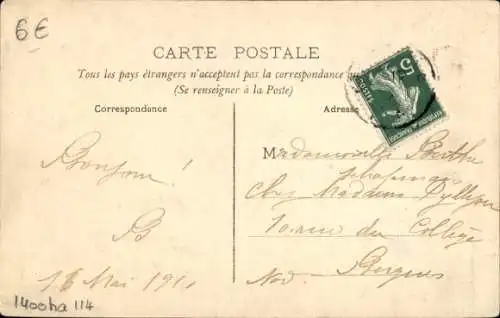 6€
CARTE POSTALE
Tous les pays étrangers n'acceptent pas la correspondance
(Se renseigner à la Poste)
Correspondance
Adresse
5
Bonjour !
B
16 Mai 191
1400ha 114
Mademoiselle Berthe
chez Madame
10 rue du Collège
Bergues
Nord